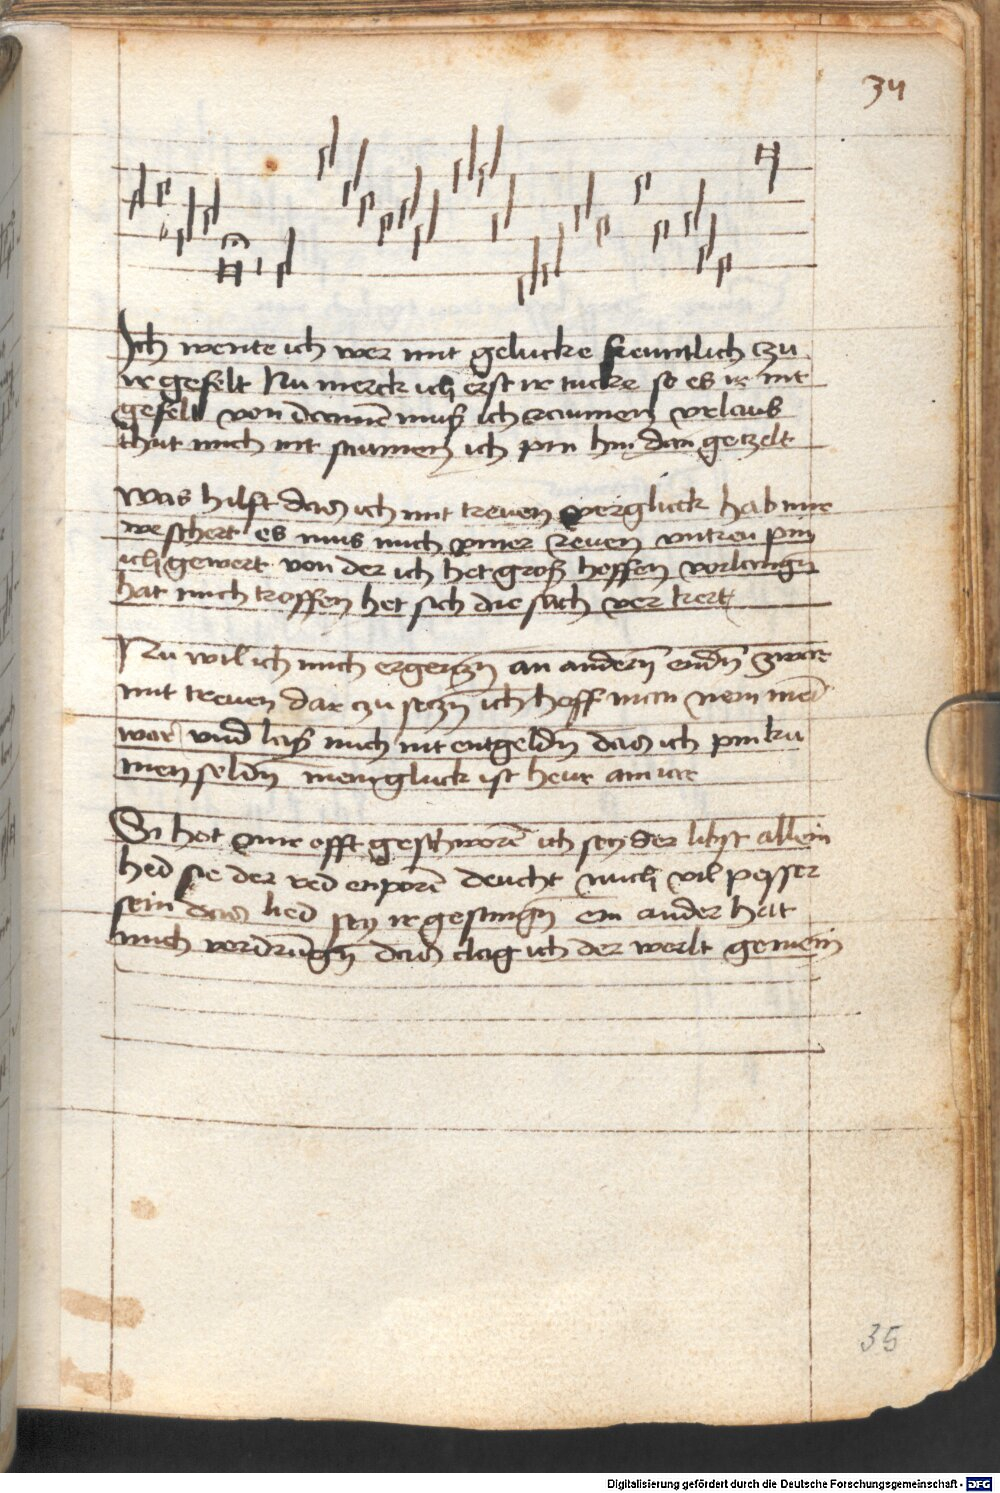 34
Ich wente ich wer mit gelucke freuntlich czu
ir geselt Nu merck ich erst ir tucke so es ir nit
gefelt von dannē muß ich raumen vrlaub
thut mich nit saumen ich pin hin dan geczelt
Was hilft das ich mit treuen verglück hab mir
weschert es mus mich ymer reuen vntreu pin
ich gewert von der ich het groß hoffen vorlangn
hat mich troffen het sich die sach ver kert
Nu wil ich mich ergeczn an andern endn
mit treuen dar czu seczn ich hoff man nem mei
war vnd laß mich nit entgeldn das ich pin ku
men seldn mein gluck ist heur
Si hot mir offt geschworē ich sey der libst allein
hed sie der red enporē deucht mich vil pesser
sein das lied sey ir gesungn ein ander hat
mich vordrungn das clag ich der werlt gemein
35
Digitalisierung gefördert durch die Deutsche Forschungsgemeinschaft - DFG